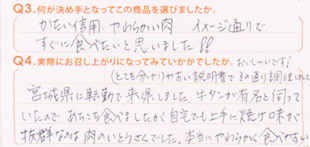 Q3.何が決め手となってこの商品を選びましたか。
かたい信用、やわらかい肉 イメージ通りで
すぐに食べたいと思いました!!
Q4.実際にお召し上がりになってみていかがでしたか。おいしいです!
(とても分かりやすい説明書でその通り調理しました)
宮城県に転勤で来県しました。牛タンが有名と伺って
いたので、あちこち食べましたが自宅でも上手に焼け味も
抜群なのは肉のいとうさんでした。本当にやわらかく食べやすい